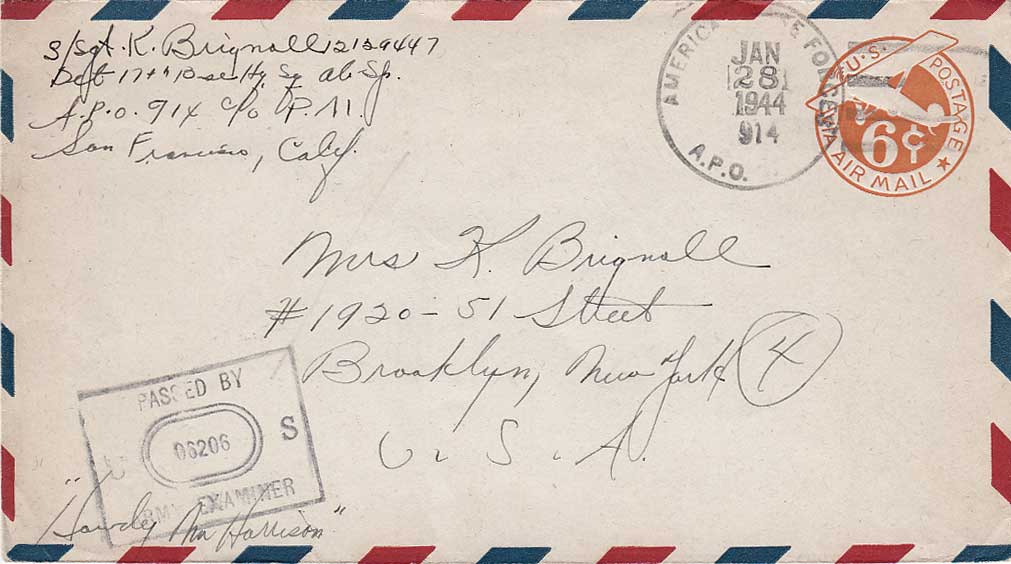 S/Sgt. K. Brignall 12129447
Det 17th Base Hq Sq Ab. Sp.
A.P.O. 914 c/o P.M.
San Francisco, Calif.
AMERICA FORCES
JAN
28
1944
914
A.P.O.
U.S. POSTAGE
6¢
VIA AIR MAIL
Mrs K. Brignall
#1920-51 Street
Brooklyn, New York (4)
U.S.A.
PASSED BY
U 06206 S
ARMY EXAMINER
"Howdy Mr Harrison"